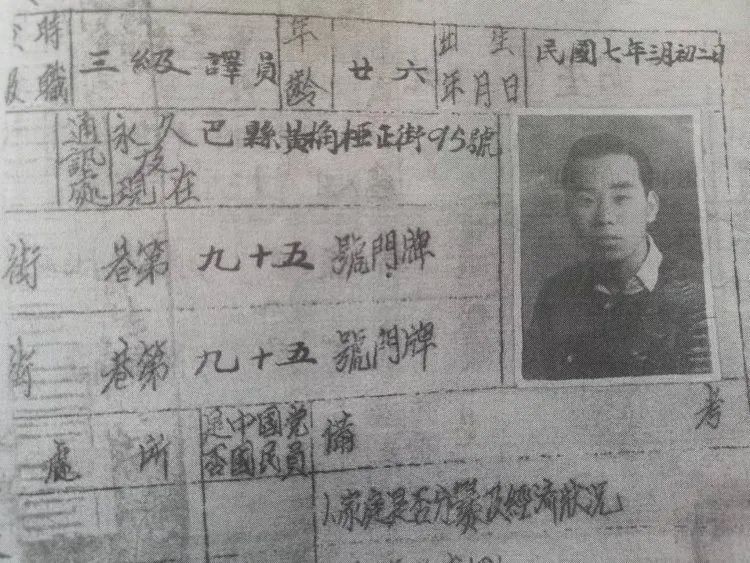 時職 三級譯員 年齡 廿六 出生年月日 民國七年三月初二日
通訊處 永久及現在 巴縣黃桷椏正街95號
街 巷第 九十五 號門牌
街 巷第 九十五 號門牌
處 所 是中国党否國民員 備 考
1.家庭是否分爨及經濟狀況